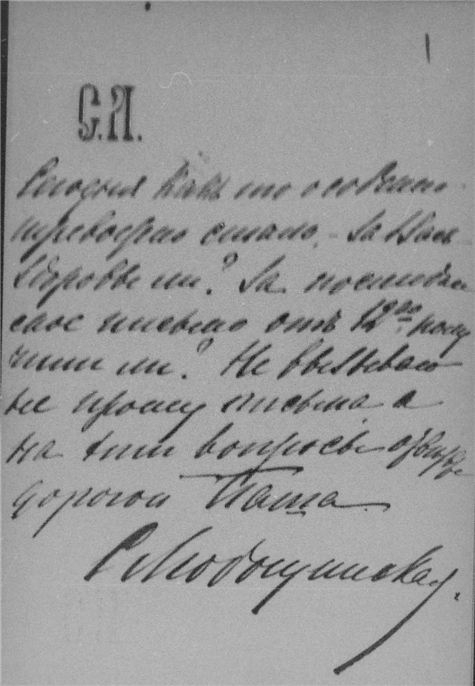 С.Л.
Сегодня какъ то особенно
тревожно стало, - За Васъ
Здоровы ли? За
мое письмо отъ 12го полу
чили ли? Не вызываю
не прошу письма а
на эти вопросы отвѣтьте
дорогой Паша
С Любощинская.